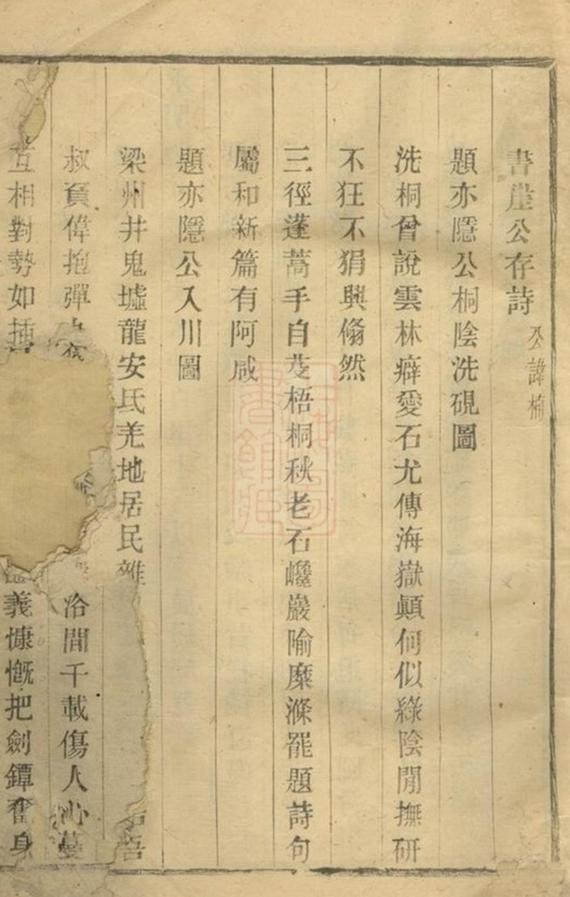 書崖公存詩 公諱楠
題亦隱公桐陰洗硯圖
洗桐曾說雲林癖愛石尤傳海嶽顛何似綠陰閒撫研
不狂不狷興翛然
三徑蓬蒿手自芟梧桐秋老石巉巖隃糜滌罷題詩句
屬和新篇有阿咸
題亦隱公入川圖
梁州井鬼墟龍安氐羌地居民雜吾
叔負偉抱彈洛閒千載傷人心蔓
互相對勢如義慷慨把劍鐔奮身